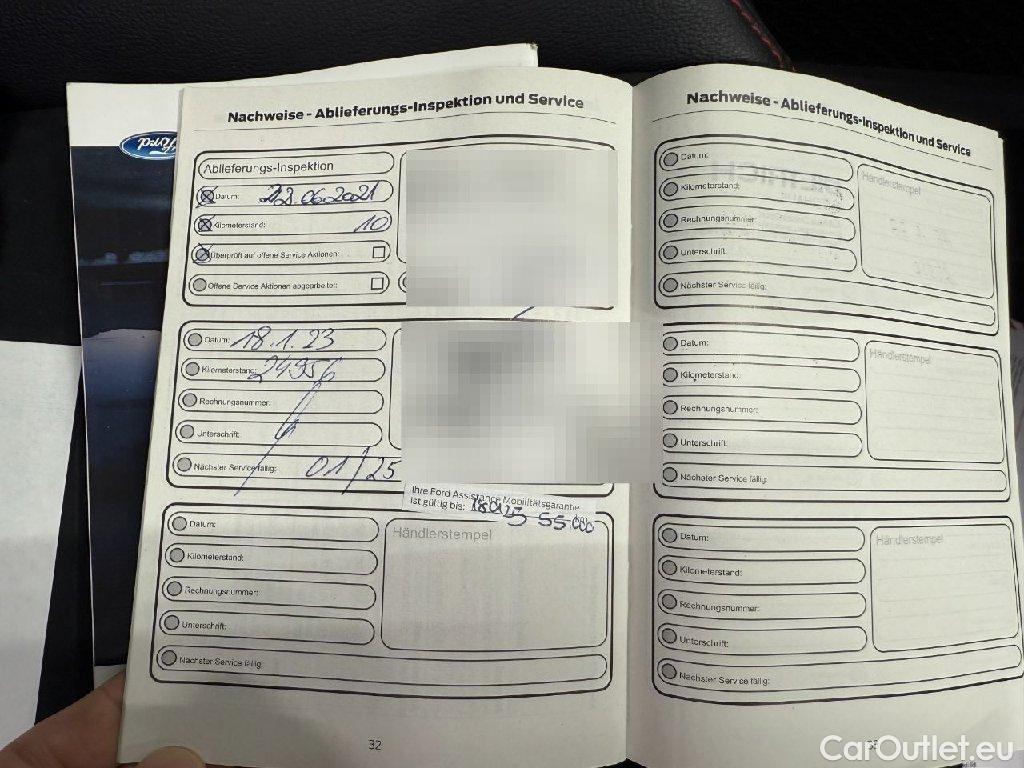 Ford
Nachweise - Ablieferungs-Inspektion und Service
Ablieferungs-Inspektion
Datum: 23.06.2021
Kilometerstand: 10
Überprüft auf offene Service Aktionen:
Offene Service Aktionen abgearbeitet:
Datum: 18.1.23
Kilometerstand: 24956
Rechnungsnummer:
Unterschrift:
Nächster Service fällig: 01/25
Ihre Ford Assistance Mobilitätsgarantie
ist gültig bis:
Datum:
Händlerstempel
Kilometerstand:
Rechnungsnummer:
Unterschrift:
Nächster Service fällig:
32
Nachweise - Ablieferungs-Inspektion und Service
Datum:
Händlerstempel
Kilometerstand:
Rechnungsnummer:
Unterschrift:
Nächster Service fällig:
Datum:
Händlerstempel
Kilometerstand:
Rechnungsnummer:
Unterschrift:
Nächster Service fällig:
Datum:
Händlerstempel
Kilometerstand:
Rechnungsnummer:
Unterschrift:
Nächster Service fällig:
CarOutlet.eu